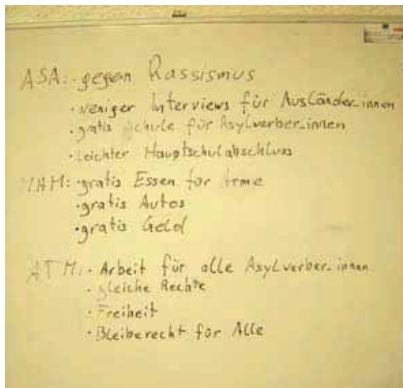 ASA: · gegen Rassismus
· weniger Interviews für Ausländer_innen
· gratis Schule für Asylwerber_innen
· leichter Hauptschulabschluss
MAM: · gratis Essen for Arme
· gratis Autos
· gratis Geld
ATM: · Arbeit für alle Asylwerber_innen
· gleiche Rechte
· Freiheit
· Bleiberecht for Alle